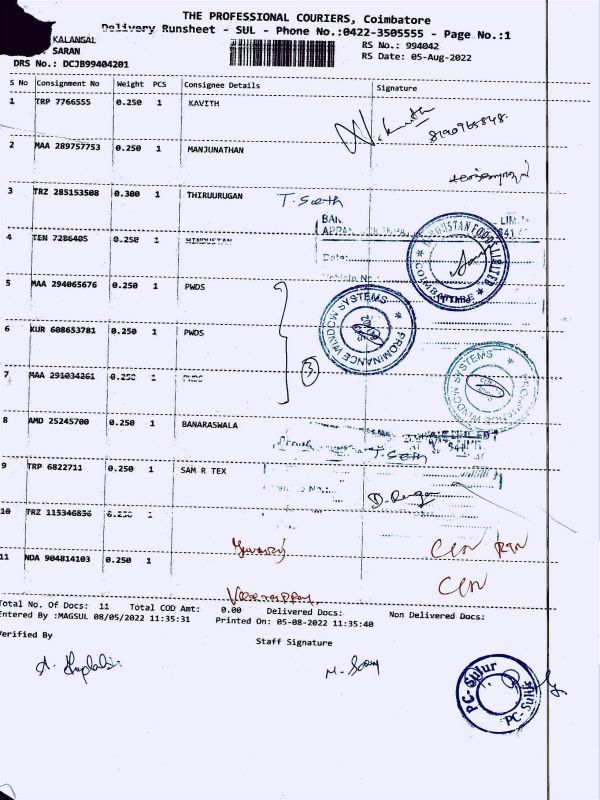 THE PROFESSIONAL COURIERS, Coimbatore
Delivery Runsheet - SUL - Phone No.:0422-3505555 - Page No.:1
KALANGAL
SARAN
RS No.: 994042
DRS No.: DCJB99404201
RS Date: 05-Aug-2022
S No Consignment No Weight PCS Consignee Details Signature
1 TRP 7766555 0.250 1 KAVITH
8190965848.
2 MAA 289757753 0.250 1 MANJUNATHAN
3 TRZ 285153508 0.300 1 THIRUURUGAN T. Seeth
4 TEN 7286405 0.250 1 HINDUSTAN
Date:
HINDUSTAN FOODS LIMITED
COIMBATORE
5 MAA 294065676 0.250 1 PWDS
PROMINANCE WINDOW SYSTEMS
6 KUR 608653781 0.250 1 PWDS
7 MAA 291034261 0.250 1 PWDS
3
PROMINANCE WINDOW SYSTEMS
8 AMD 25245700 0.250 1 BANARASWALA
T. Seeth
9 TRP 6822711 0.250 1 SAM R TEX
10 TRZ 115346836 0.250 1
11 NDA 904814103 0.250 1
Total No. Of Docs: 11 Total COD Amt: 0.00 Delivered Docs: Non Delivered Docs:
Entered By :MAGSUL 08/05/2022 11:35:31 Printed On: 05-08-2022 11:35:40
Verified By
Staff Signature
PC-Sulur